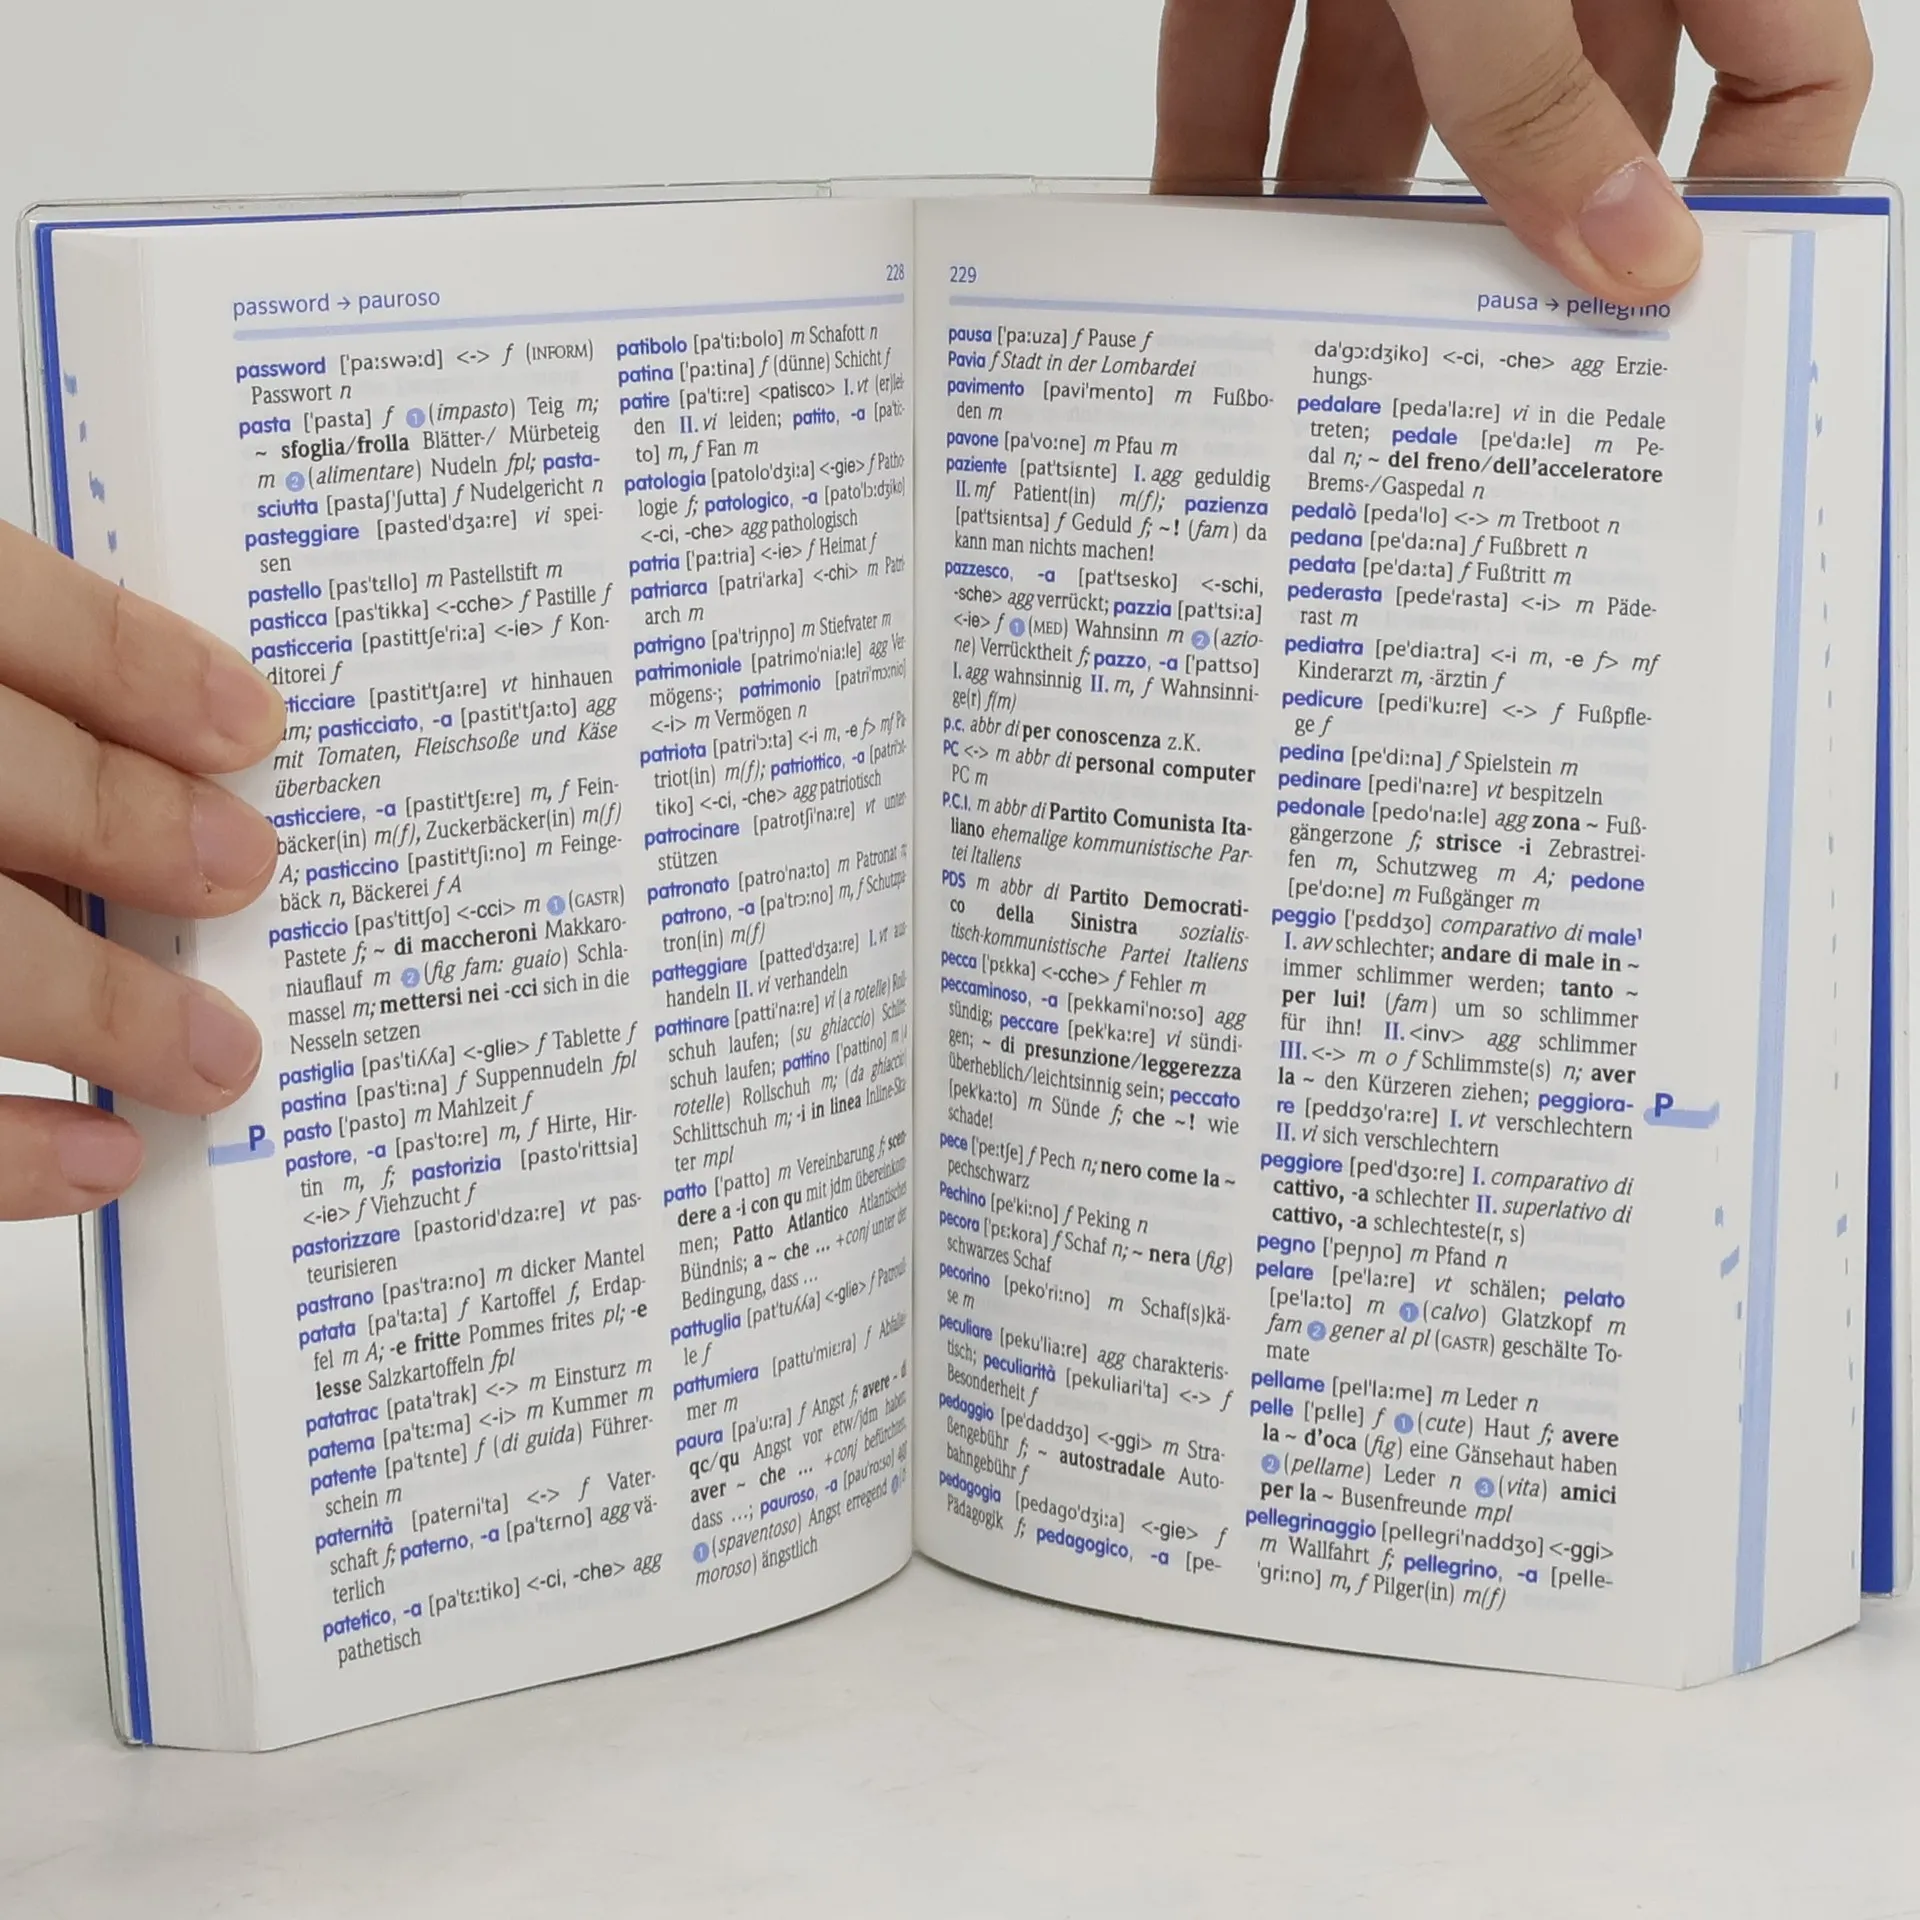 password → pauroso
228
password ['pa:swə:d] <-> f (INFORM)
Passwort n
pasta ['pasta] f 1 (impasto) Teig m;
~ sfoglia/frolla Blätter-/ Mürbeteig
m 2 (alimentare) Nudeln fpl; pasta-
sciutta [pastaʃ'ʃutta] f Nudelgericht n
pasteggiare [pasted'dʒa:re] vi spei-
sen
pastello [pas'tɛllo] m Pastellstift m
pasticca [pas'tikka] <-cche> f Pastille f
pasticceria [pastittʃe'ri:a] <-ie> f Kon-
ditorei f
[pastit'tʃa:re] vt hinhauen
pasticciato, -a [pastit'tʃa:to] agg
mit Tomaten, Fleischsoße und Käse
überbacken
-a [pastit'tʃɛ:re] m, f Fein-
bäcker(in) m(f), Zuckerbäcker(in) m(f)
A; pasticcino [pastit'tʃi:no] m Feinge-
bäck n, Bäckerei f A
pasticcio [pas'tittʃo] <-cci> m 1 (GASTR)
Pastete f; ~ di maccheroni Makkaro-
niauflauf m 2 (fig fam: guaio) Schla-
massel m; mettersi nei -cci sich in die
Nesseln setzen
pastiglia [pas'tiʎʎa] <-glie> f Tablette f
pastina [pas'ti:na] f Suppennudeln fpl
pasto ['pasto] m Mahlzeit f
P
pastore, -a [pas'to:re] m, f Hirte, Hir-
tin m, f; pastorizia [pasto'rittsia]
<-ie> f Viehzucht f
pastorizzare [pastorid'dza:re] vt pas-
teurisieren
pastrano [pas'tra:no] m dicker Mantel
patata [pa'ta:ta] f Kartoffel f, Erdap-
fel m A; -e fritte Pommes frites pl; -e
lesse Salzkartoffeln fpl
patatrac [pata'trak] <-> m Einsturz m
patema [pa'tɛ:ma] <-i> m Kummer m
patente [pa'tɛnte] f (di guida) Führer-
schein m
paternità [paterni'ta] <-> f Vater-
schaft f; paterno, -a [pa'tɛrno] agg vä-
terlich
patetico, -a [pa'tɛ:tiko] <-ci, -che> agg
pathetisch
patibolo [pa'ti:bolo] m Schafott n
patina ['pa:tina] f (dünne) Schicht f
patire [pa'ti:re] <patisco> I. vt (er)lei-
den II. vi leiden; patito, -a [pa'ti:-
to] m, f Fan m
patologia [patolo'dʒi:a] <-gie> f Patho-
logie f; patologico, -a [pato'lɔ:dʒiko]
<-ci, -che> agg pathologisch
patria ['pa:tria] <-ie> f Heimat f
patriarca [patri'arka] <-chi> m Patri-
arch m
patrigno [pa'triɲɲo] m Stiefvater m
patrimoniale [patrimo'nia:le] agg Ver-
mögens-; patrimonio [patri'mɔ:nio]
<-i> m Vermögen n
patriota [patri'ɔ:ta] <-i m, -e f> mf Pa-
triot(in) m(f); patriottico, -a [patri'ɔt-
tiko] <-ci, -che> agg patriotisch
patrocinare [patrotʃi'na:re] vt unter-
stützen
patronato [patro'na:to] m Patronat n;
patrono, -a [pa'trɔ:no] m, f Schutzpa-
tron(in) m(f)
patteggiare [patted'dʒa:re] I. vt aus-
handeln II. vi verhandeln
pattinare [patti'na:re] vi (a rotelle) Roll-
schuh laufen; (su ghiaccio) Schlitt-
schuh laufen; pattino ['pattino] m (a
rotelle) Rollschuh m; (da ghiaccio)
Schlittschuh m; -i in linea Inline-Ska-
ter mpl
patto ['patto] m Vereinbarung f; scen-
dere a -i con qu mit jdm übereinkom-
men; Patto Atlantico Atlantisches
Bündnis; a ~ che ... +conj unter der
Bedingung, dass ...
pattuglia [pat'tuʎʎa] <-glie> f Patrouil-
le f
pattumiera [pattu'miɛ:ra] f Abfallei-
mer m
paura [pa'u:ra] f Angst f; avere ~ di
qc/qu Angst vor etw/jdm haben;
aver ~ che ... +conj befürchten,
dass ...; pauroso, -a [pau'ro:so] agg
1 (spaventoso) Angst erregend 2
moroso) ängstlich
229
pausa → pellegrino
pausa ['pa:uza] f Pause f
Pavia f Stadt in der Lombardei
pavimento [pavi'mento] m Fußbo-
den m
pavone [pa'vo:ne] m Pfau m
paziente [pat'tsiɛnte] I. agg geduldig
II. mf Patient(in) m(f); pazienza
[pat'tsiɛntsa] f Geduld f; ~! (fam) da
kann man nichts machen!
pazzesco, -a [pat'tsesko] <-schi,
-sche> agg verrückt; pazzia [pat'tsi:a]
<-ie> f 1 (MED) Wahnsinn m 2 (azio-
ne) Verrücktheit f; pazzo, -a ['pattso]
I. agg wahnsinnig II. m, f Wahnsinni-
ge(r) f(m)
p.c. abbr di per conoscenza z.K.
PC <-> m abbr di personal computer
PC m
P.C.I. m abbr di Partito Comunista Ita-
liano ehemalige kommunistische Par-
tei Italiens
PDS m abbr di Partito Democrati-
co della Sinistra sozialis-
tisch-kommunistische Partei Italiens
pecca ['pɛkka] <-cche> f Fehler m
peccaminoso, -a [pekkami'no:so] agg
sündig; peccare [pek'ka:re] vi sündi-
gen; ~ di presunzione/leggerezza
überheblich/leichtsinnig sein; peccato
[pek'ka:to] m Sünde f; che ~! wie
schade!
pece ['pe:tʃe] f Pech n; nero come la ~
pechschwarz
Pechino [pe'ki:no] f Peking n
pecora ['pɛ:kora] f Schaf n; ~ nera (fig)
schwarzes Schaf
pecorino [peko'ri:no] m Schaf(s)kä-
se m
peculiare [peku'lia:re] agg charakteris-
tisch; peculiarità [pekuliari'ta] <-> f
Besonderheit f
pedaggio [pe'daddʒo] <-ggi> m Stra-
ßengebühr f; ~ autostradale Auto-
bahngebühr f
pedagogia [pedago'dʒi:a] <-gie> f
Pädagogik f; pedagogico, -a [pe-
da'gɔ:dʒiko] <-ci, -che> agg Erzie-
hungs-
pedalare [peda'la:re] vi in die Pedale
treten; pedale [pe'da:le] m Pe-
dal n; ~ del freno/dell'acceleratore
Brems-/Gaspedal n
pedalò [peda'lo] <-> m Tretboot n
pedana [pe'da:na] f Fußbrett n
pedata [pe'da:ta] f Fußtritt m
pederasta [pede'rasta] <-i> m Päde-
rast m
pediatra [pe'dia:tra] <-i m, -e f> mf
Kinderarzt m, -ärztin f
pedicure [pedi'ku:re] <-> f Fußpfle-
ge f
pedina [pe'di:na] f Spielstein m
pedinare [pedi'na:re] vt bespitzeln
pedonale [pedo'na:le] agg zona ~ Fuß-
gängerzone f; strisce -i Zebrastrei-
fen m, Schutzweg m A; pedone
[pe'do:ne] m Fußgänger m
peggio ['pɛddʒo] comparativo di male¹
I. avv schlechter; andare di male in ~
immer schlimmer werden; tanto ~
per lui! (fam) um so schlimmer
für ihn! II. <inv> agg schlimmer
III. <-> m o f Schlimmste(s) n; aver
la ~ den Kürzeren ziehen; peggiora-
re [peddʒo'ra:re] I. vt verschlechtern
II. vi sich verschlechtern
P
peggiore [ped'dʒo:re] I. comparativo di
cattivo, -a schlechter II. superlativo di
cattivo, -a schlechteste(r, s)
pegno ['peɲɲo] m Pfand n
pelare [pe'la:re] vt schälen; pelato
[pe'la:to] m 1 (calvo) Glatzkopf m
fam 2 gener al pl (GASTR) geschälte To-
mate
pellame [pel'la:me] m Leder n
pelle ['pɛlle] f 1 (cute) Haut f; avere
la ~ d'oca (fig) eine Gänsehaut haben
2 (pellame) Leder n 3 (vita) amici
per la ~ Busenfreunde mpl
pellegrinaggio [pellegri'naddʒo] <-ggi>
m Wallfahrt f; pellegrino, -a [pelle-
'gri:no] m, f Pilger(in) m(f)